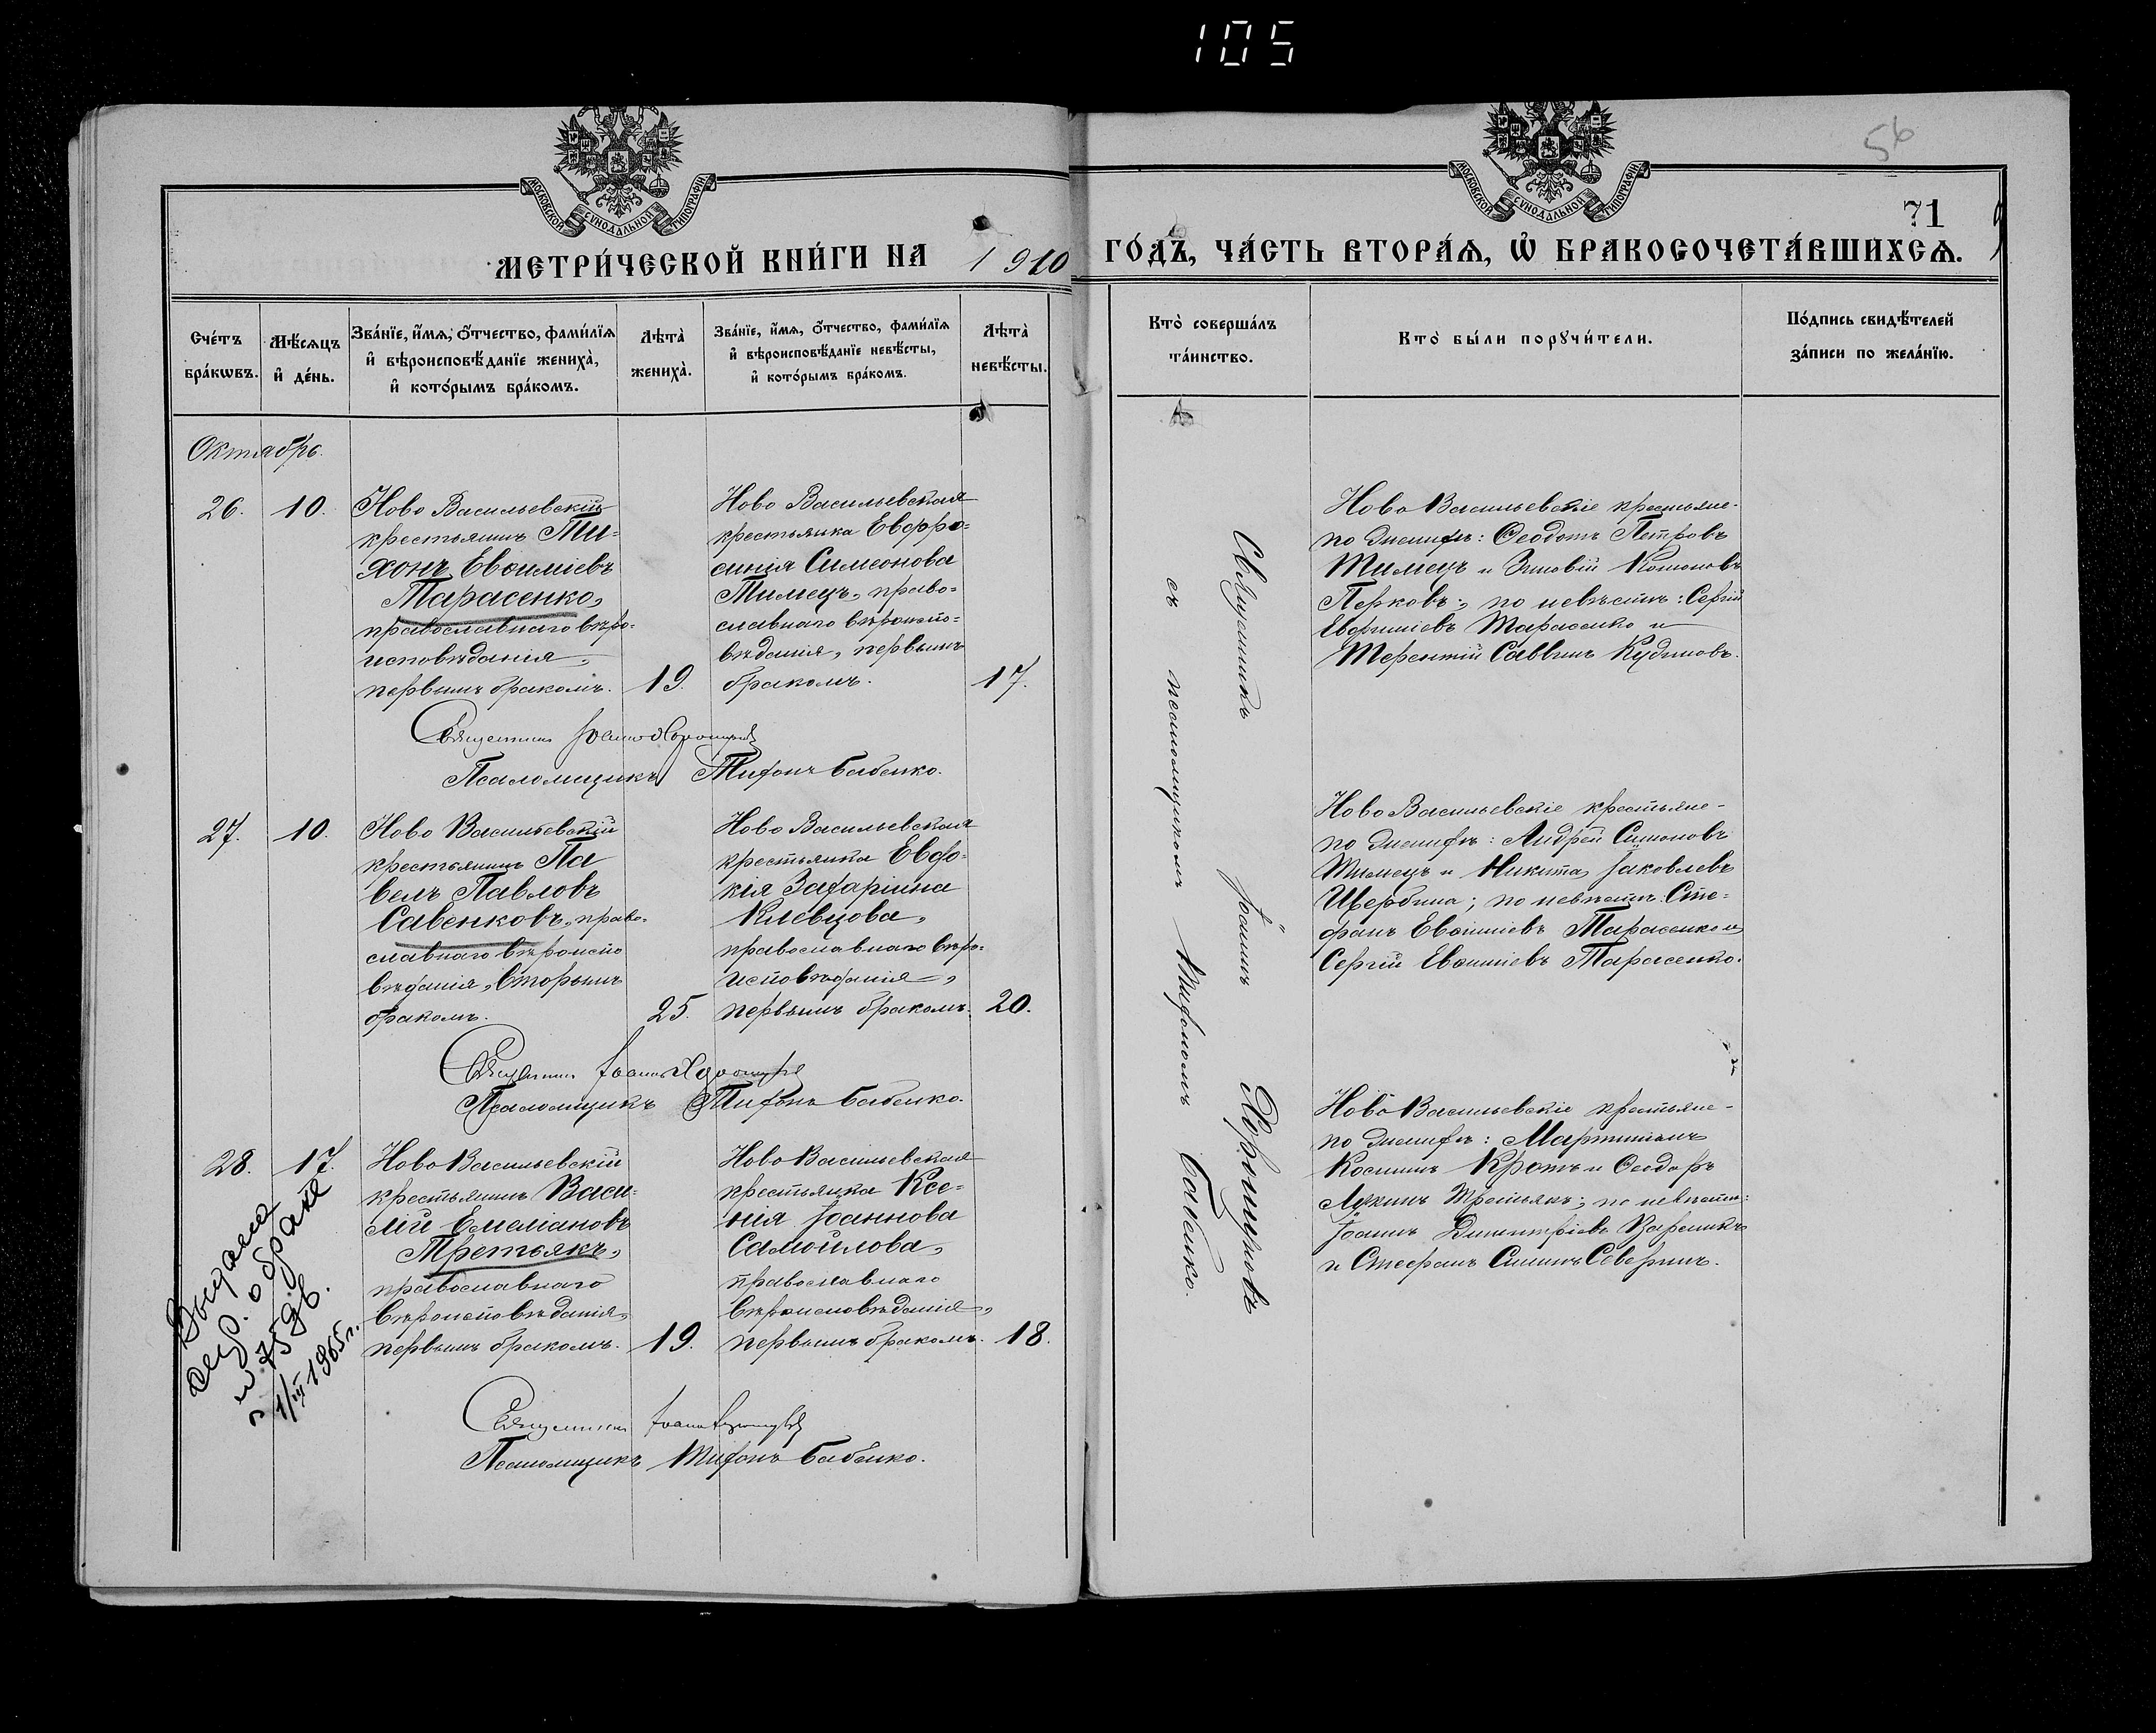 105
56
71
МОСКОВСКОЙ СѴНОДАЛЬНОЙ ТИПОГРАФІИ
МОСКОВСКОЙ СѴНОДАЛЬНОЙ ТИПОГРАФІИ
МЕТРИ́ЧЕСКОЙ КНИ́ГИ НА 1910 ГО́ДЪ, ЧА́СТЬ ВТОРА́Ѧ, Ѽ БРАКОСОЧЕТА́ВШИХСѦ.
Сче́тъ
бра́кѡвъ.
Мѣ́сѧцъ
и҆ де́нь.
Зва́нїе, и҆́мѧ, ѻ҆́тчество, фами́лїѧ
и҆ вѣроисповѣ́данїе жениха̀,
и҆ кото́рымъ бра́комъ.
Лѣ́та̀
жениха̀.
Зва́нїе, и҆́мѧ, ѻ҆́тчество, фами́лїѧ
и҆ вѣроисповѣ́данїе невѣ́сты,
и҆ кото́рымъ бра́комъ.
Лѣ́та̀
невѣ́сты.
Кто̀ соверша́лъ
та́инство.
Кто̀ бы́ли порꙋчи́тели.
По́дпись свидѣ́телей
за́писи по жела́нїю.
Октябрь.
26.
10.
Ново Васильевскій
крестьянинъ Ти=
хонъ Евѳиміевъ
Тарасенко,
православнаго вѣро=
исповѣданія,
первымъ бракомъ.
19.
Ново Васильевская
крестьянка Евфро=
синія Симеонова
Тимецъ, право=
славнаго вѣроиспо=
вѣданія, первымъ
бракомъ.
17.
Ново Васильевскіе крестьяне-
по женихѣ: Ѳеодотъ Петровъ
Тимецъ и Зиновій
по невѣстѣ: Сергій
Евфиміевъ Тарасенко и
Терентій Саввинъ Кудиновъ.
Священникъ Іоаннъ
Псаломщикъ Тихонъ Бабенко.
27.
10.
Ново Васильевскій
крестьянинъ Па
велъ Павловъ
Савенковъ, право=
славнаго вѣроиспо
вѣданія, вторымъ
бракомъ.
25.
Ново Васильевская
крестьянка Евдо=
кія Захаріина
Клевцова,
православнаго вѣро=
исповѣданія,
первымъ бракомъ.
20.
Ново Васильевскіе крестьяне-
по женихѣ: Андрей Симоновъ
Тимецъ и Никита Іаковлевъ
Щербина; по невѣстѣ: Сте=
фанъ Евѳиміевъ Тарасенко и
Сергій Евѳиміевъ Тарасенко.
Священникъ Іоаннъ
Псаломщикъ Тихонъ Бабенко.
28.
17.
Ново Васильевскій
крестьянинъ Васи=
лій Емеліановъ
Третьякъ,
православнаго
вѣроисповѣданія,
первымъ бракомъ.
19.
Ново Васильевская
крестьянка Ксе=
нія Іоаннова
Самойлова,
православнаго
вѣроисповѣданія,
первымъ бракомъ.
18.
Ново Васильевскіе крестьяне-
по женихѣ: Мартиніанъ
Косминъ Кротъ и Ѳеодоръ
Лукинъ Третьякъ; по невѣстѣ:
Іоаннъ Димитріевъ
и Стефанъ
Священникъ Іоаннъ
Псаломщикъ Тихонъ Бабенко.
Священникъ Іоаннъ
съ псаломщикомъ Тихономъ Бабенко.
Выдана
о браке
75
1/III 1965 г.